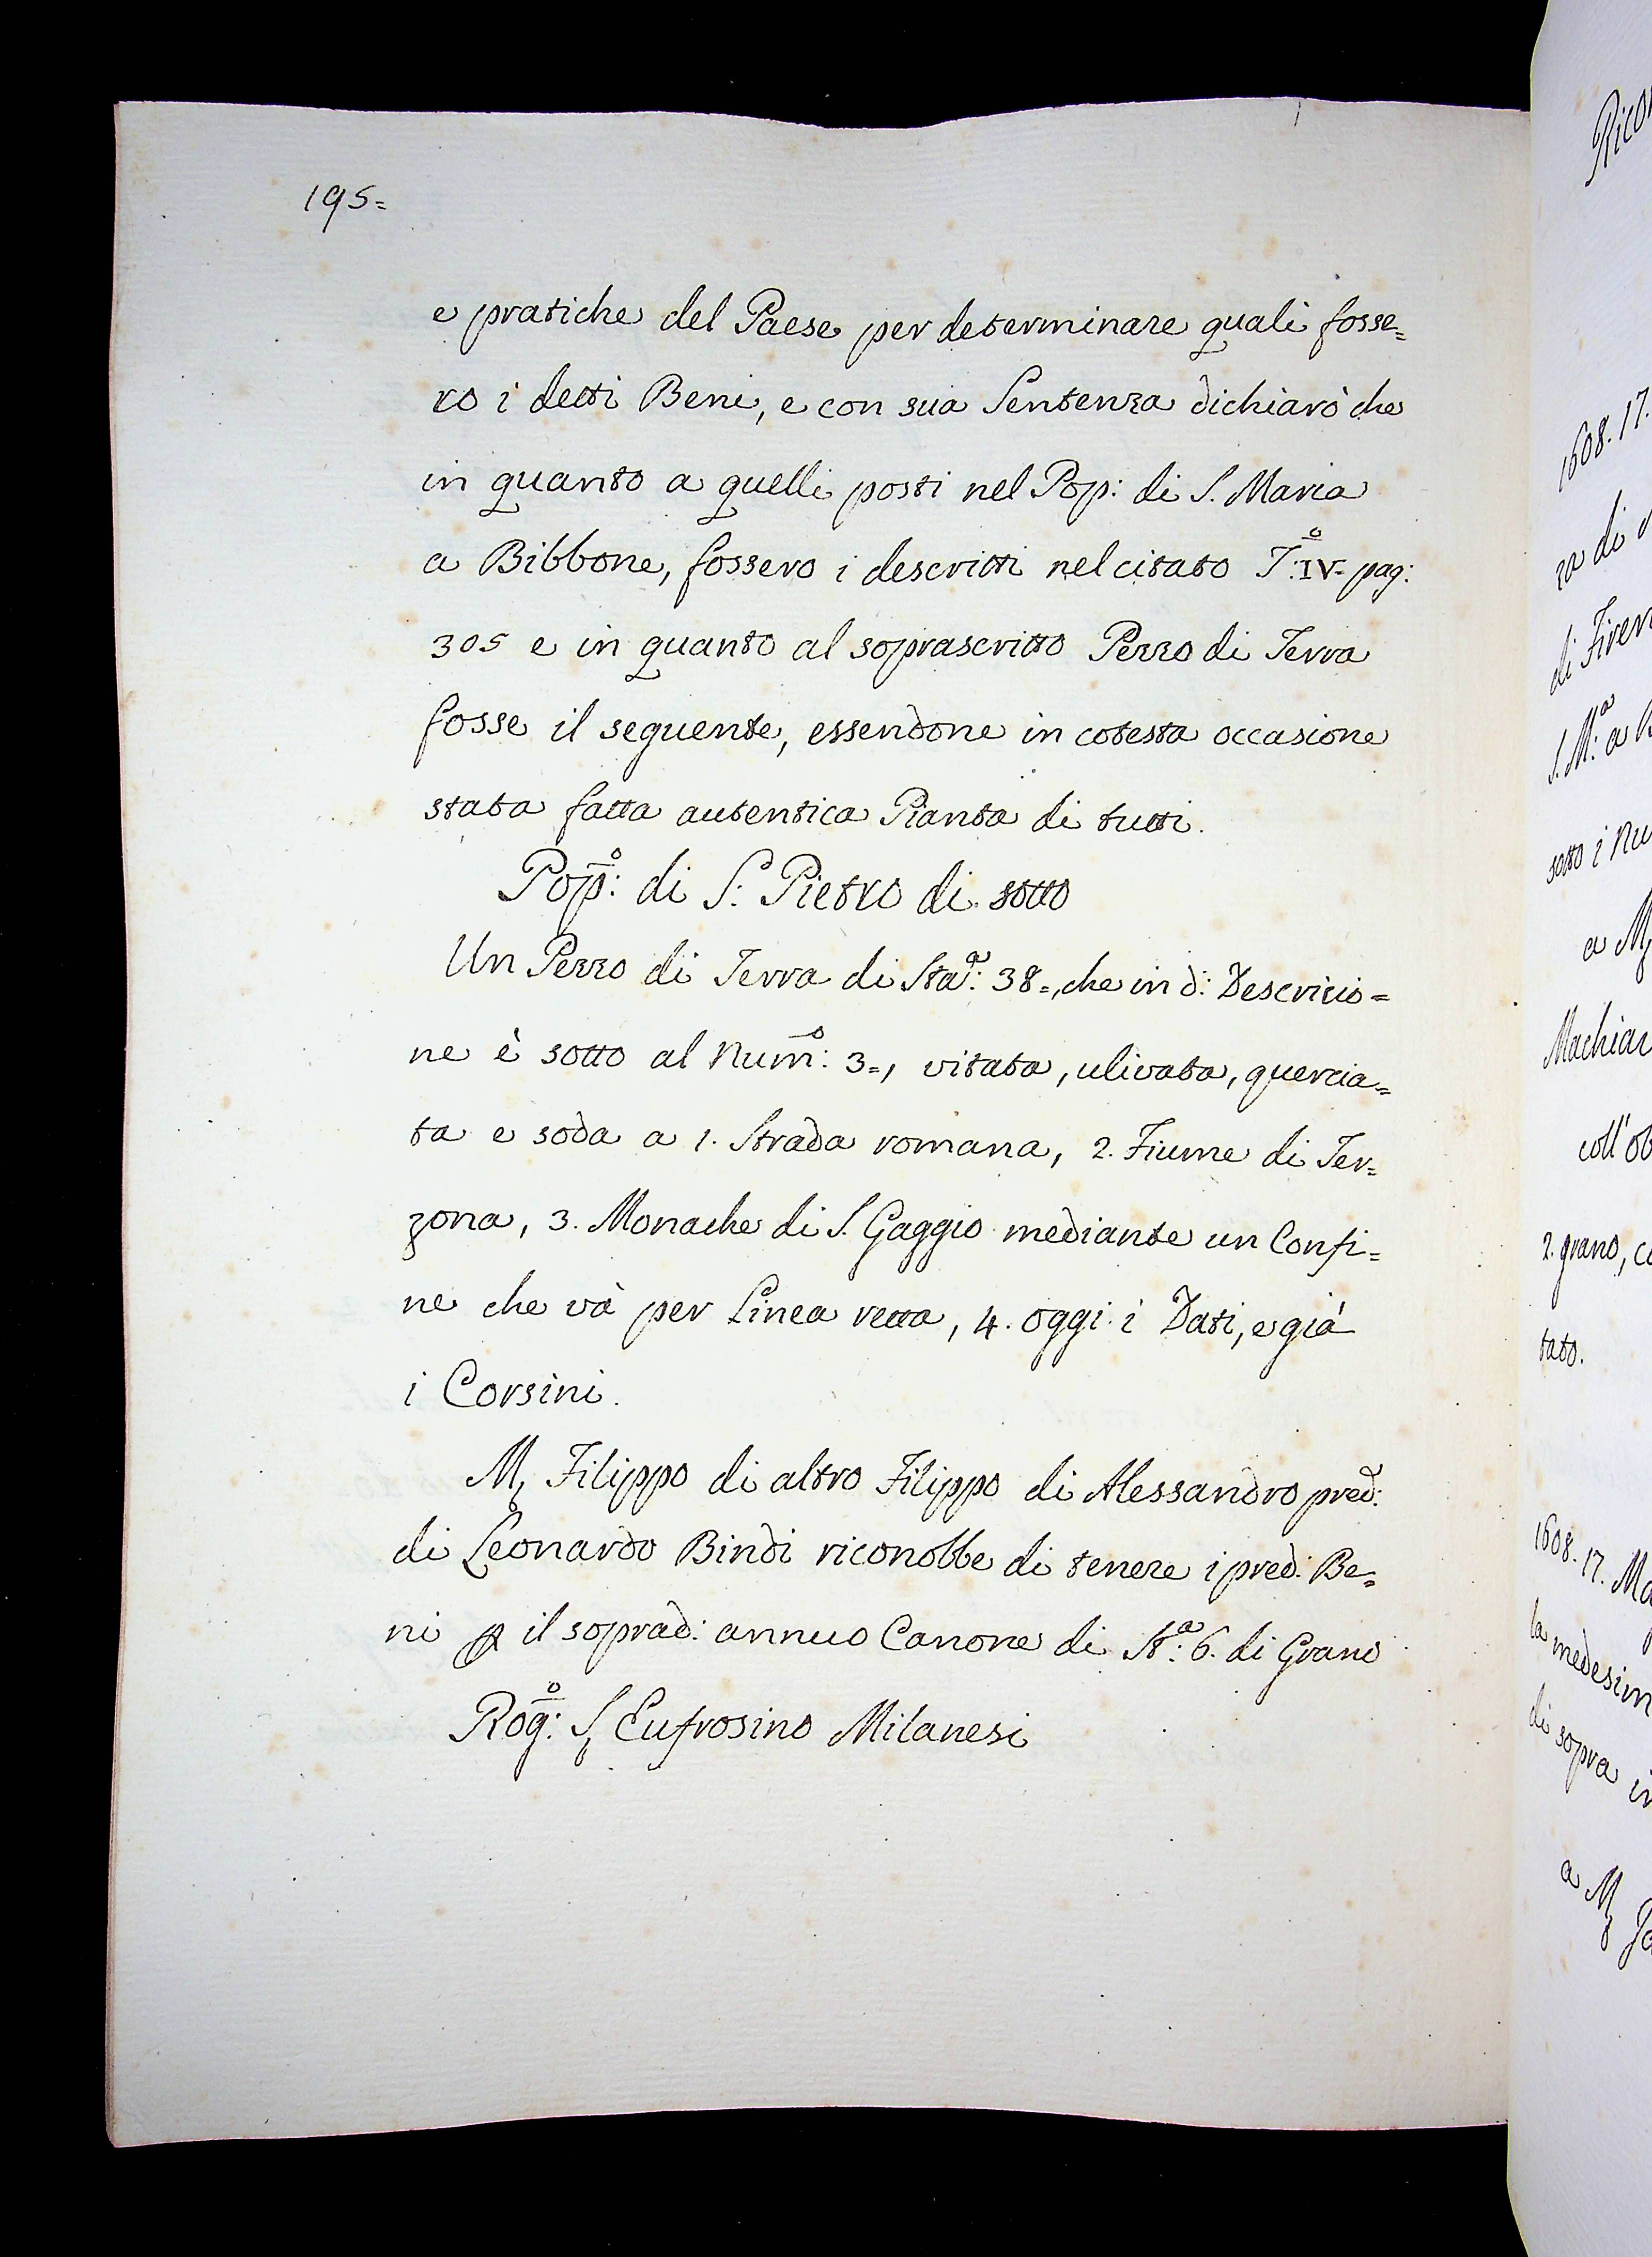 195=
e pratiche del Paese per determinare quali fosse=
ro i detti Beni, e con sua Sentenza dichiarò che
in quanto a quelli posti nel Pop: di S. Maria
a Bibbone, fossero i descritti nel citato T:º IV= pag:
305 e in quanto al soprascritto Pezzo di Terra
fosse il seguente, essendone in cotesta occasione
stata fatta autentica Pianta di tutti.
Popº: di S: Pietro di sotto
Un Pezzo di Terra di Staª: 38=, che in d: Descrizio=
ne è sotto al Numº: 3=, vitata, ulivata, quercia=
ta e soda a 1. Strada romana, 2. Fiume di Ter=
zona, 3. Monache di S. Gaggio mediante un Confi=
ne che và per Linea retta, 4. oggi i Dati, e già
i Corsini.
M. Filippo di altro Filippo di Alessandro pred:
di Leonardo Bindi riconobbe di tenere i pred: Be=
ni p il soprad: annuo Canone di Stª: 6. di Grano
Rogº: S. Eufrosino Milanesi
1608. 17.
di Firen
S. Mª: a B
sotto i Nu
a M
Machiav
coll' ob
2. grano, co
tato.
1608. 17. Ma
la medesim
di sopra in
a M